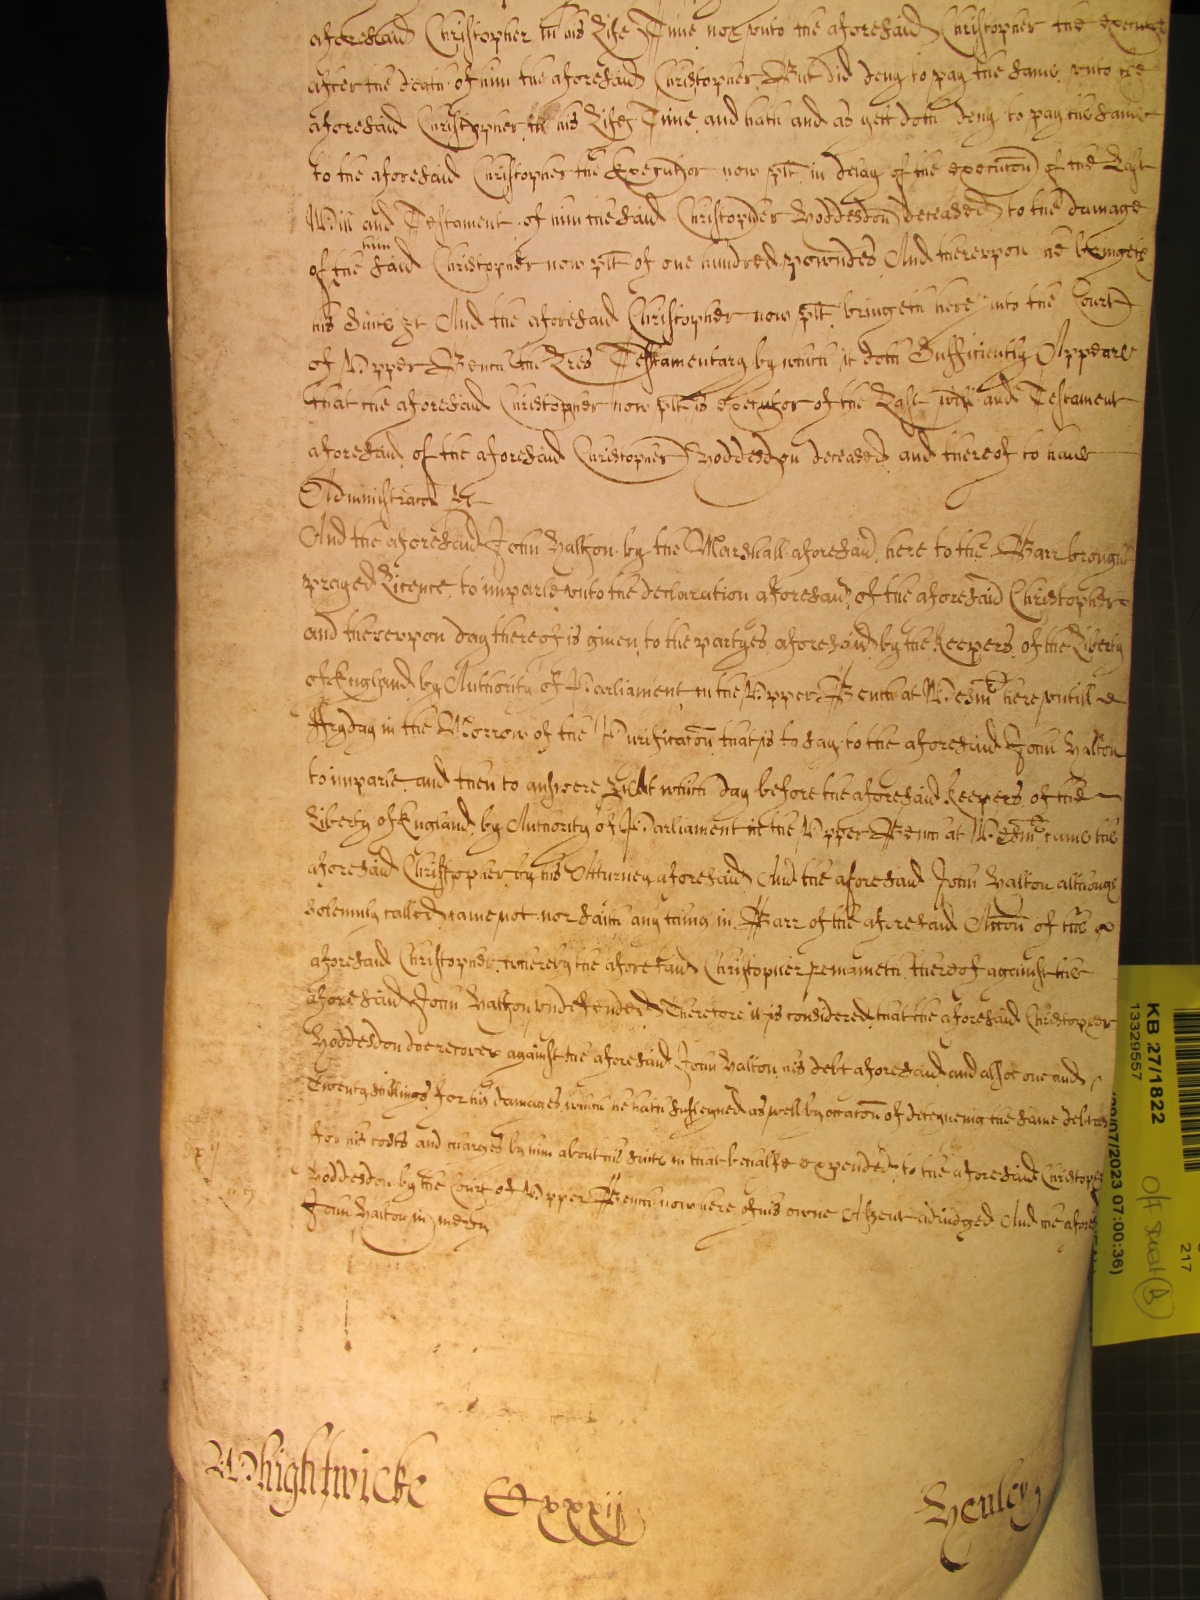 aforesaid Christopher in his Life Time nor unto the aforesaid Christopher the executor
after the death of him the aforesaid Christopher But did deny to pay the same unto the
aforesaid Christopher in his Life Time and hath and as yett doth deny to pay the same
to the aforesaid Christopher the Executor now plt in delay of the execucon of the Last
Will and Testament of him the said Christopher Hoddesdon deceased to the damage
of the said him Christopher now plt of one hundred powndes And thereupon he bringeth
his Suite &c And the aforesaid Christopher now plt bringeth here into the Court
of Upper Bench the Lres Testamentary by which it doth Sufficiently Appeare
that the aforesaid Christopher now plt is executor of the Last will and Testament
aforesaid of the aforesaid Christopher Hoddesdon deceased and thereof to have
Administracon &c
And the aforesaid John Halton by the Marshall aforesaid here to the Barr brought
prayed Licence to imparle unto the declaration aforesaid of the aforesaid Christopher
and thereupon day thereof is given to the partyes aforesaid by the Keepers of the Liberty
of England by Authority of Parliament in the Upper Bench at Westm here untill
ffryday in the Morrow of the Purificacon that is to say to the aforesaid John Halton
to imparle and then to answere &c At which day before the aforesaid Keepers of the
Liberty of England by Authority of Parliament in the Upper Bench at Westm came the
aforesaid Christopher by his Atturney aforesaid And the aforesaid John Halton although
solemnly called came not nor saith any thing in Barr of the aforesaid Accon of the
aforesaid Christopher whereby the aforesaid Christopher remaineth thereof against the
aforesaid John Halton undefended Therefore it is considered that the aforesaid Christopher
Hoddesdon doe recover against the aforesaid John Halton his debt aforesaid and alsoe one and
Twenty shillings for his damages which he hath susteyned as well by occacon of deteyneing the same debt as
for his costs and charges by him about his suite in that behalfe expended to the aforesaid Christopher
Hoddesdon by the Court of Upper Bench now here of his owne Assent adiudged And the aforesaid
John Halton in mercy
Whightwicke Cxxxij Henley
KB 27/1822
13329557
07/2023 07:00:36)
Off Sreal (B)
217